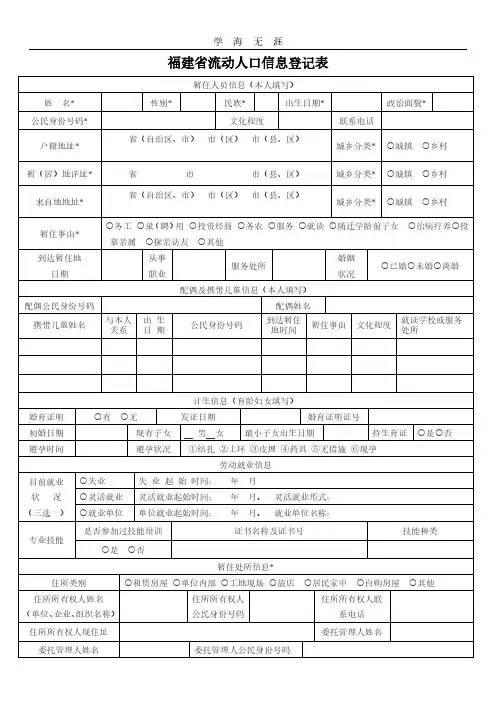 学 海 无 涯
福建省流动人口信息登记表
暂住人员信息（本人填写）
姓 名* 性别* 民族* 出生日期* 政治面貌*
公民身份号码* 文化程度 联系电话
户籍地址* 省（自治区、市） 市（区） 市（县、区） 城乡分类* 〇城镇 〇乡村
暂（居）地详址* 省 市 市（县、区） 城乡分类* 〇城镇 〇乡村
来自地地址* 省（自治区、市） 市（区） 市（县、区） 城乡分类* 〇城镇 〇乡村
暂住事由* 〇务工 〇录（聘）用 〇投资经商 〇务农 〇服务 〇就读 〇随迁学龄前子女 〇治病疗养〇投
靠亲属 〇探亲访友 〇其他
到达暂住地
日期
从事
职业
服务处所
婚姻
状况
〇已婚〇未婚〇离婚
配偶及携带儿童信息（本人填写）
配偶公民身份号码 配偶姓名
携带儿童姓名
与本人
关系
出 生
日 期
公民身份号码
到达暂住
地时间
暂住事由 文化程度
就读学校或服务
处所
计生信息（育龄妇女填写）
婚育证明 〇有 〇无 发证日期 婚育证明证号
初婚日期 现有子女 男 女 最小子女出生日期 持生育证 〇是〇否
避孕时间 避孕状况 ①结扎 ②上环 ③皮埋 ④药具 ⑤无措施 ⑥现孕
劳动就业信息
目前就业
状 况
（三选一）
〇失业 失 业 起 始 时间： 年 月
〇灵活就业 灵活就业起始时间： 年 月。 灵活就业形式：
〇就业单位 单位就业起始时间： 年 月。 就业单位名称：
专业技能 是否参加过技能培训 证书名称及证书号 技能种类
〇是 〇否
暂住处所信息*
住所类别 〇租赁房屋 〇单位内部 〇工地现场 〇旅店 〇居民家中 〇自购房屋 〇其他
住所所有权人姓名
（单位、企业、组织名称）
住所所有权人
公民身份号码
住所所有权人联
系电话
住所所有权人现住址 委托管理人姓名
委托管理人姓名 委托管理人公民身份号码